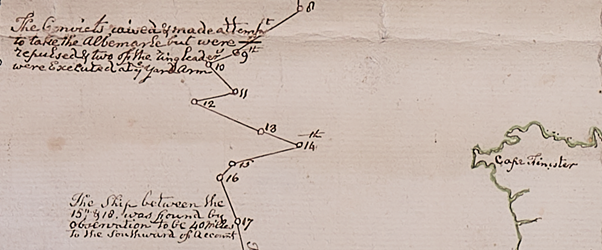 8
The Convicts raised & made attempt
to take the Albemarle but were
repulsed & two of the ringleaders
were Executed at ye Yard Arm
9th
10
11
12
13
14th
15
16
Cape Finister
The Ship between the
15th & 18. was found by
observation to be 40 miles
to the Southward of account
17